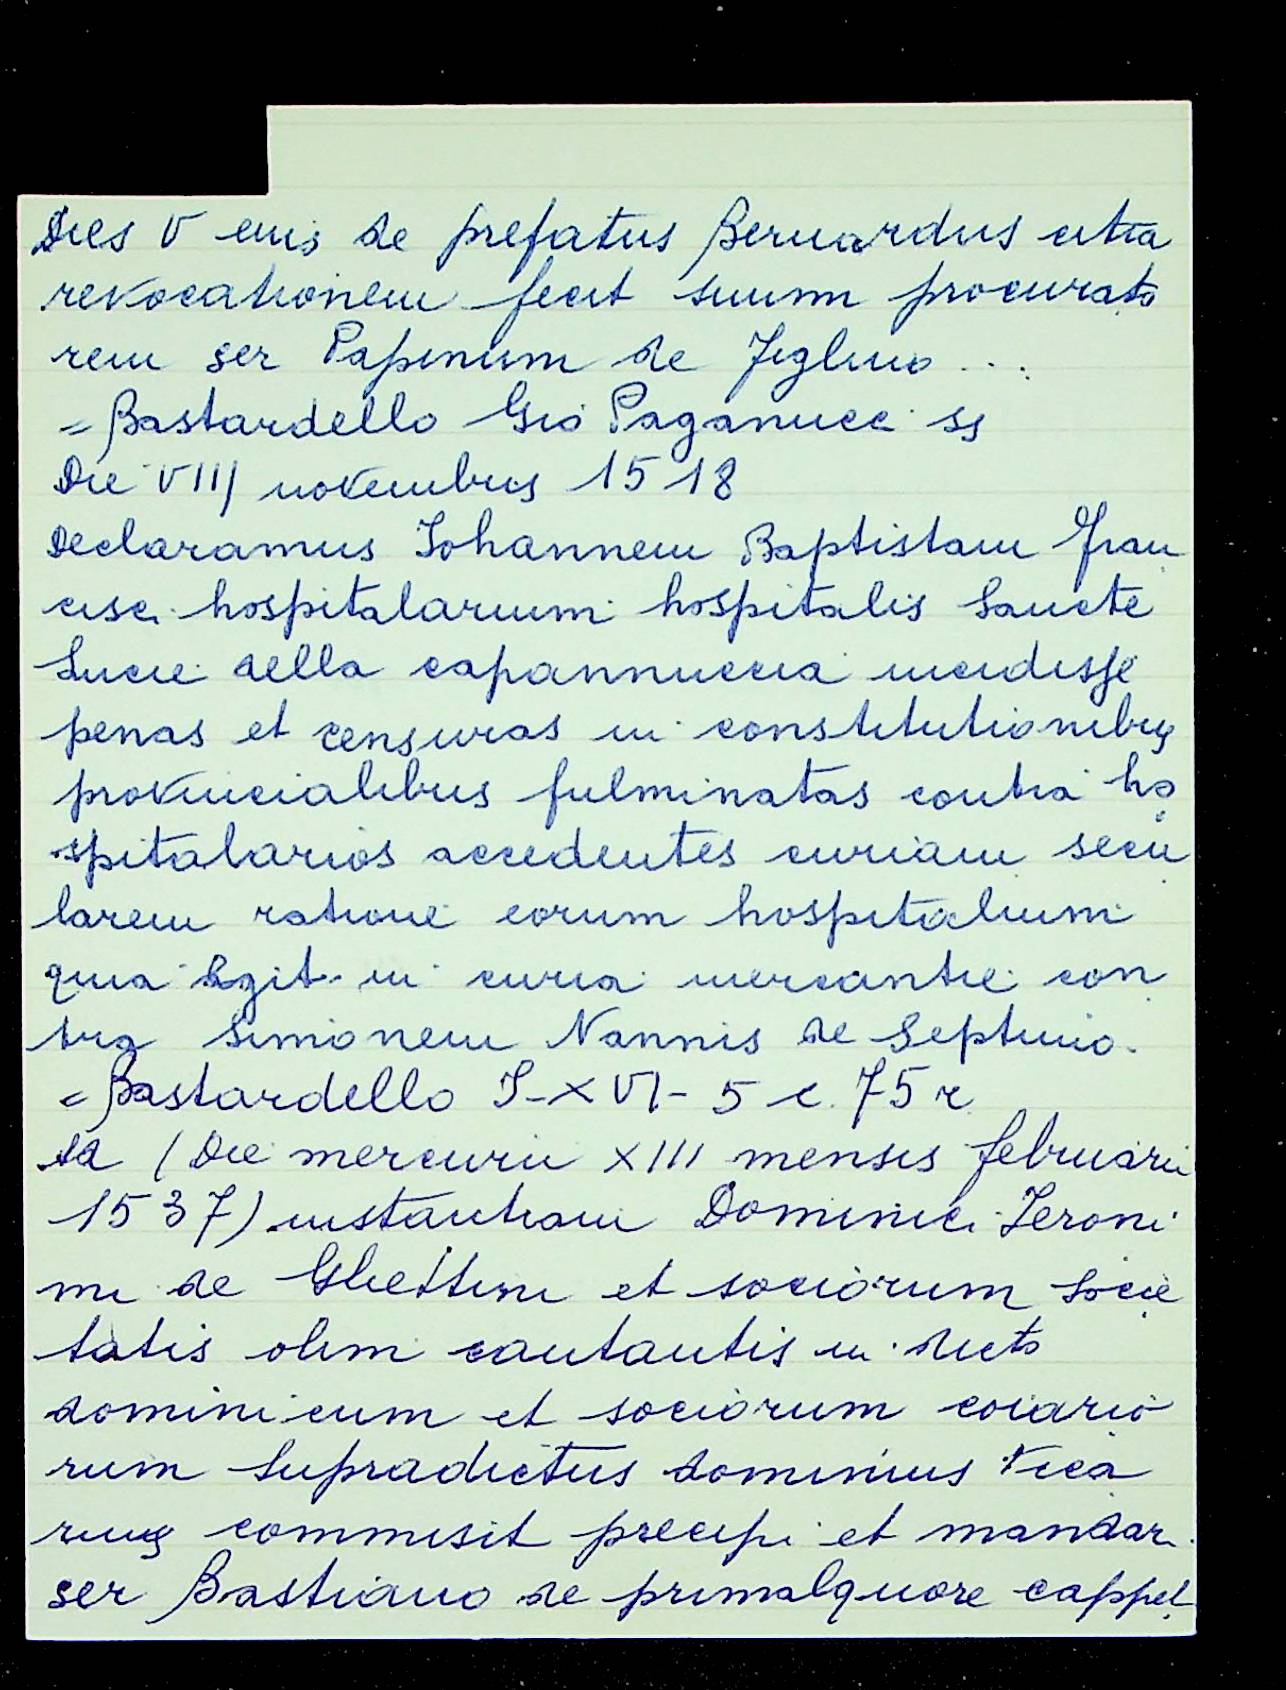 Dies V eius de prefatus Bernardus citra
revocationem fecit suum procurato
rem ser Papinum de Feglino ...
= Bastardello Gio Paganucci ss
Die VIII novembris 1518
Declaramus Iohannem Baptistam Fran
cisci hospitalarium hospitalis Sancte
Lucie della capannuccia incidisse
penas et censuras in constitutionibus
provincialibus fulminatas contra ho
spitalarios accedentes curiam secu
larem ratione eorum hospitalium
quia agit in curia mercantie con
tra Simonem Nannis de Septimo.
= Bastardello I-XVI-5 c. 75 r
(Die mercurii XIII mensis februarii
1537) instantiam Dominici Ieroni
mi de Ghettini et sociorum socie
tatis olim cantantis in dicto
dominicum et sociorum coiario
rum supradictus dominus Vica
rius commisit precipi et mandari
ser Bastiano de primalquore cappel